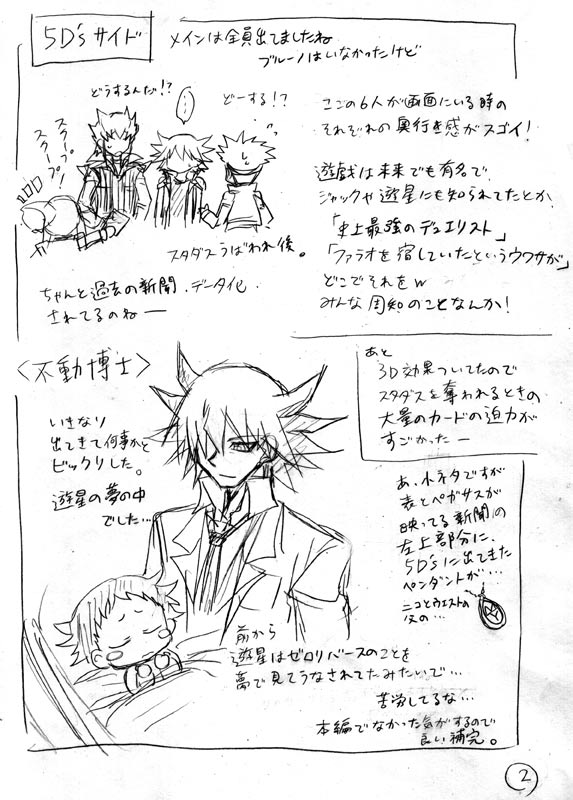 5D'sサイド
メインは全員出てましたね
ブルーノはいなかったけど
どうするんだ!?
…
どーする!?
スクープ
スクープ!
ここの6人が画面にいる時の
それぞれの奥行き感がスゴイ!
遊戯は未来でも有名で
ジャックや遊星にも知られてたとか
「史上最強のデュエリスト」
「ファラオを宿していたというウワサが」
どこでそれをw
みんな周知のことなんか!
スタダスうばわれ後。
ちゃんと過去の新聞、データ化
されてるのねー
<不動博士>
いきなり
出てきて何事かと
ビックリした。
遊星の夢の中
でした…
あと
3D効果ついてたので
スタダスを奪われるときの
大量のカードの迫力が
すごかったー
あ、小ネタですが
表とペガサスが
映ってる新聞の
左上部分に、
5D'sに出てきた
ペンダントが…
ニコとウエストの
父の…
前から
遊星はゼロリバースのことを
夢で見てうなされてたみたいで…
苦労してるな…
本編でなかった気がするので
良い補完。
2